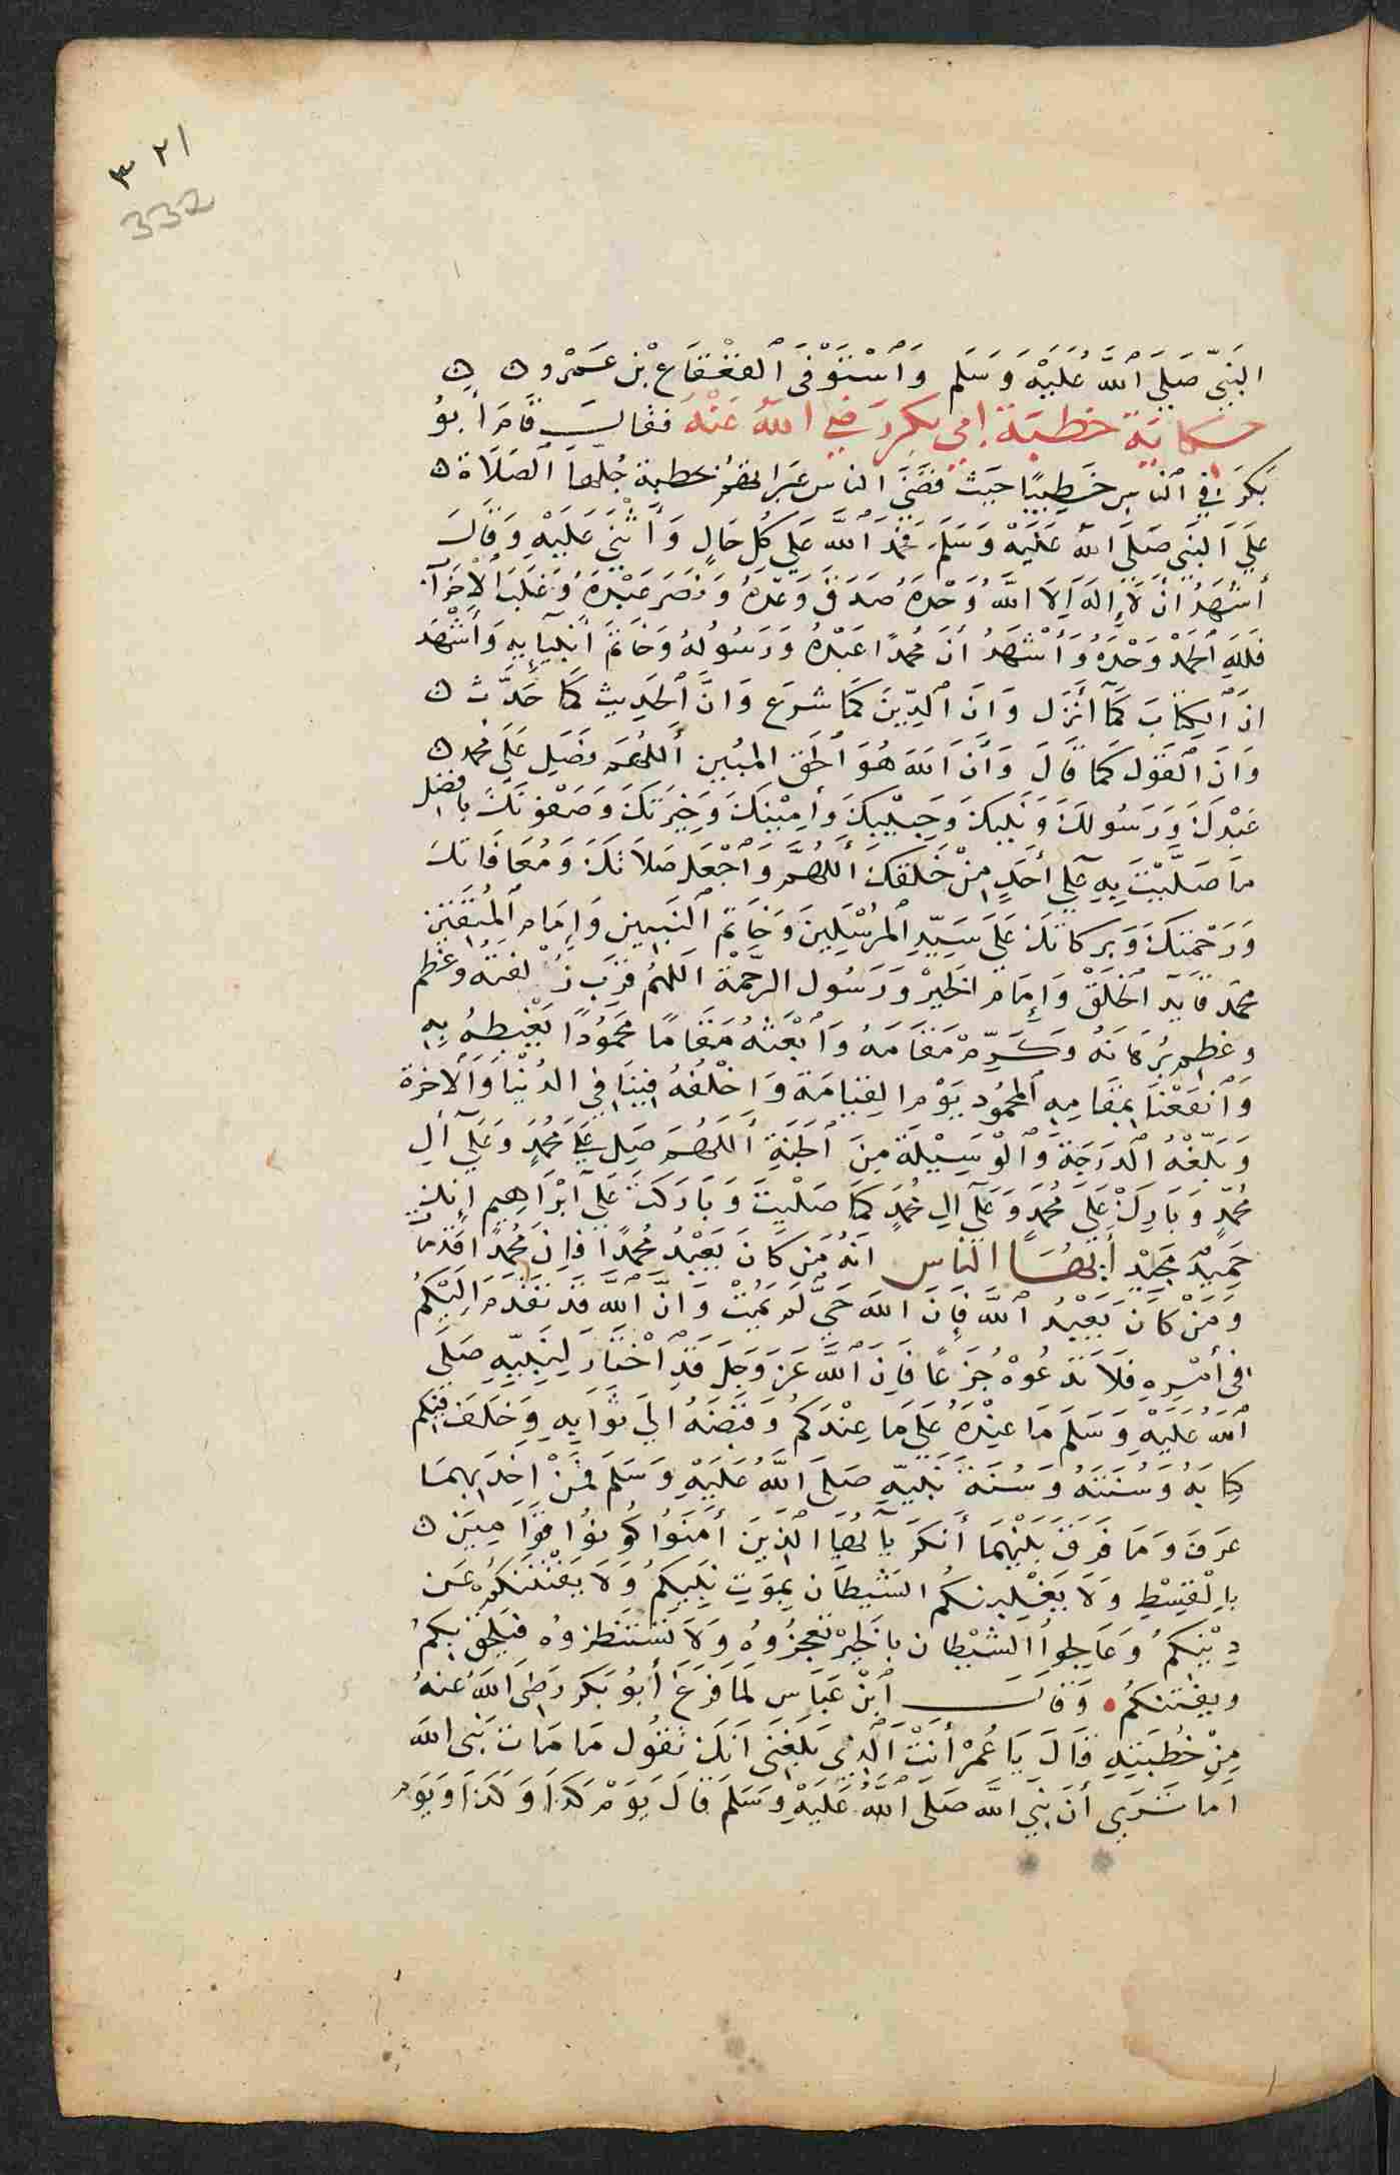 ٣٢١
332
النبي صَلى اَللَّه عَليْهِ وَسَلم وَاَسْتَوْفى اَلقعْقاع بْن عَمْرو ن ن
حكاية خطبة ابي بكر رضي الله عَنْهُ فقالـــ قَامَ أبوُ
بَكرَ في اَلناسِ خَطِيبًا حَيث قضَى الناس عَبَراتهُمْ بخطبة جُلّهَا اَلصَلَاة ن
عَلي اَلنبَي صَلى الله عَليْهِ وَسَلمَ فحمدَ اَللَّه عَلى كل حَالٍ وَأثْنَى عَليْهِ وَقالـَ
أشهَدُ ان لَا إلَه إلَا اللَّهُ وَحْدهُ صَدَقَ وَعْدهُ وَنصَر عَبْدهُ وَغَلبَ الأحزَابَ
فللَّهِ اَلحمَدْ وَحْدَهُ وَأشْهَدُ أنَ مُحمدًا عَبْدهُ وَرَسُولهُ وَخَاتمَ أنبيَآيهِ وَأشْهَد
انَ اَلكِتابَ كمَآ أنْزَل وَانَ اَلدِّينَ كمَا شرَع وَانَّ اَلحَدِيث كمَا حَدَّث ن
وَانَ اَلقوْل كمَا قالَ وَأنَ اَللَه هُوَ اَلحق المبُين أللهُمَ فصَلِ عَلى محمد ن
عَبْدكَ وَرَسُولكَ وَنبيكَ وَحَبيْبِكَ وَأمِيْنِكَ وَخِيَرتكَ وَصَفْوتكَ بافضل
مَا صَليْتَ بهِ عَلى أحَدٍ مِنْ خَلقِكَ أللهُمَّ وَاَجْعَل صَلاَتكَ وَمُعَافَاتكَ
وَرَحْمَتكَ وَبَركاتكَ عَلى سَيّدِ اَلمرْسَلِينَ وَخاتمَ اَلنبَيين وَإمَام اَلمتقين
محمَد قآيد اَلخلقْ وَإمَام الخيْر وَرَسُول الرَّحَمْة اَللهُمُ قرّبْ زُلفتهُ وعَظم
وعَظم بُرهانهُ وَكرّمْ مَقامَهُ وَاَبْعَثهُ مَقامًا محَمُودًا يَغْبطهُ بهِ
وَاَنفعْنا بمقامِهِ اَلمحْمُود يَوْم القِيامَة وَاخْلفهُ فِينا في الدُنيْا وَاَلآخرة
وَبَلّغهُ اَلدرَجَة وَاَلوَسِيْلة مِنَ اَلجَنةِ أللهُمَ صَل عَلى محُمَدٍ وَعَلى آلِ
مُحمّدٍ وَبَاركْ عَلى محُمَدَ وَعَلى آلِ محُمَدٍ كمَا صَليْتَ وَبَارَكتَ عَلى اَبْرَاهِيم إنكَ
حَمِيدٌ مجَيْد أيهُـَا الناس انهُ مَنْ كانَ يَعْبُد مُحمدًا فإن مُحمدًا قدْ مَات
وَمَنْ كانَ يَعْبُد اَللَّه فإنَ اللَه حَيٌّ لمْ يمُتْ وَانَّ اَللَّه قدْ تقدمَ إليْكمُ
في أمْرِهِ فَلَا تدعُوهُ جُزَعًا فَإنَ اَللَّه عَزَ وَجَل قدِ اَخْتارَ لِنبيّهِ صَلَى
اَللَّهُ عَليَهِ وَسَلمَ مَا عِنْدهُ عَلى مَا عِنْدكمُ وَقبَضَهُ إلى ثوَابهِ وَخلفَ فيكم
كِتابَهُ وَسُنَتهُ وَسُنةَ نبيّهِ صَلى اَللَّهُ عَليْهِ وَسَلمَ فمنْ اخدَ بهمَا
عَرَف وَمَا فرَقَ بَيْنهمَا أنكرَ يآ أيُهَا الذِينَ أمَنُوا كونوُا قوّامِينَ ن
بِالْقِسْطِ وَلا يَغْلِبنكُم الشَيْطَان بمِوَتِ نبيكُمُ وَلَا يَفْتننكُمْ عَن
دِيْنِكمُ وَعَاجِلوُا الشيْطان بالخيْر تعجِزُوهُ وَلَا تَسْتنظرُوهُ فيَلحق بكمُ
ويفتنكُم. وَقالـَــ اَبْن عَبَاس لمَا فرَغ أبُو بَكر رَضىَ اَللَهُ عَنهُ
مِنْ خطبَتهِ قالَ يَا عُمرْ أنتْ اَلذِي بَلغِني أنكَ تقوُل مَا مَاتَ نبَي الله
امَا ترَي أنَ نبيَ اللَّه صَلى اَللَّهُ عَليْهِ وَسَلمَ قالَ يَوْم كذا وَكذَا وَيوَم